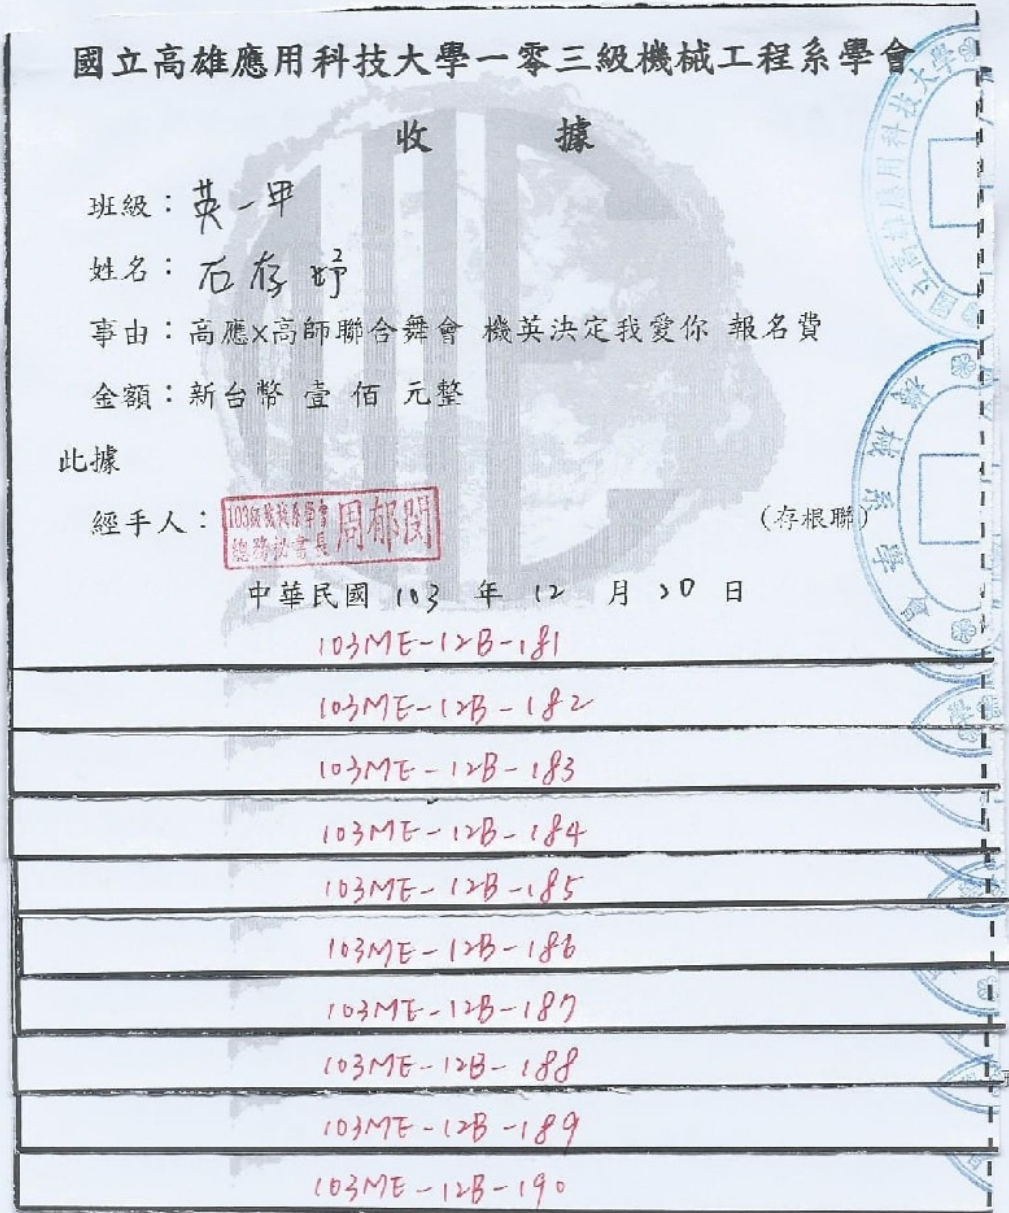 國立高雄應用科技大學一零三級機械工程系學會
收 據
班級：英一甲
姓名：石存妤
事由：高應x高師聯合舞會 機英決定我愛你 報名費
金額：新台幣 壹 佰 元整
此據
經手人：
103級機械系學會
總務祕書長
周郁閔
(存根聯)
中華民國 103 年 12 月 20 日
國立高雄應用科技大學
機械系學會
103ME-12B-181
103ME-12B-182
103ME-12B-183
103ME-12B-184
103ME-12B-185
103ME-12B-186
103ME-12B-187
103ME-12B-188
103ME-12B-189
103ME-12B-190